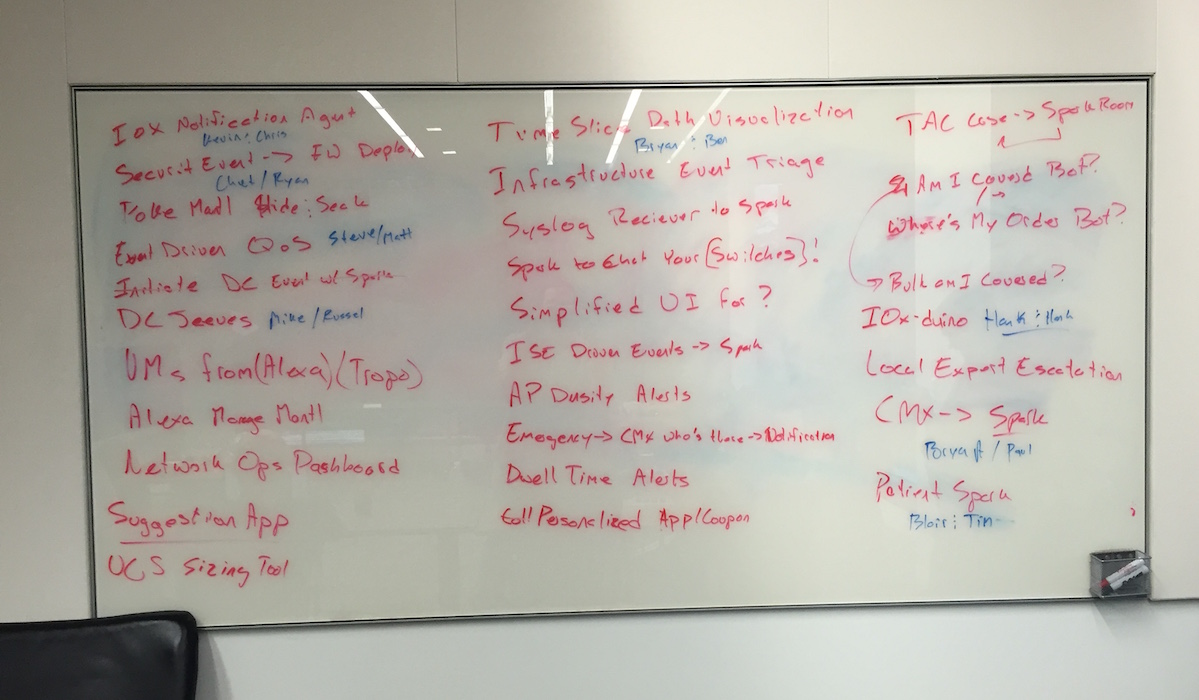 IOX Notification Agent
Kevin : Chris
Securit Event -> FW Deploy
Chet / Ryan
Hide : Seek
Event Driven QoS Steve/Matt
Initiate DC Event w/ Spark
DC Jeeves Mike / Russel
VMs from (Alexa) (Tropo)
Alexa
Network Ops Dashboard
Suggestion App
UCS Sizing Tool
Time Slice Path Visualization
Bryan : Ben
Infrastructure Event Triage
Syslog Reciever to Spark
Spark to Chat Your {Switches}!
Simplified UI for ?
ISE Driven Events -> Spark
AP Dusity Alerts
Emegency -> CMX who's there -> Notification
Dwell Time Alerts
Personalized App/Coupon
TAC Case -> Spark Room
Am I Covered Bot?
Where's My Order Bot?
-> Bulk am I Covered?
IOx-duino Hank : Hank
Local Expert Escalation
CMX -> Spark
Bryan / Paul
Patient Spark
Blair : Tim